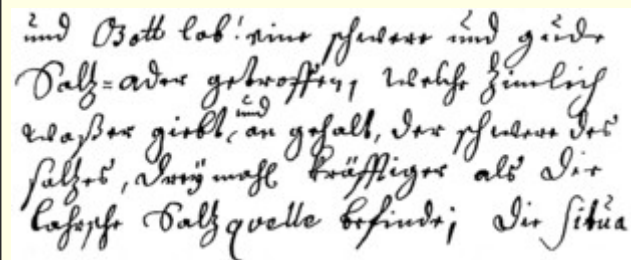 und Gott lob! eine schwere und gude
Saltz=ader getroffen, welche zimlich
waßer giebt, und an gehalt, der schwere des
saltzes, dreÿmahl kräfftiger als die
Saltzquelle befinde; die situa